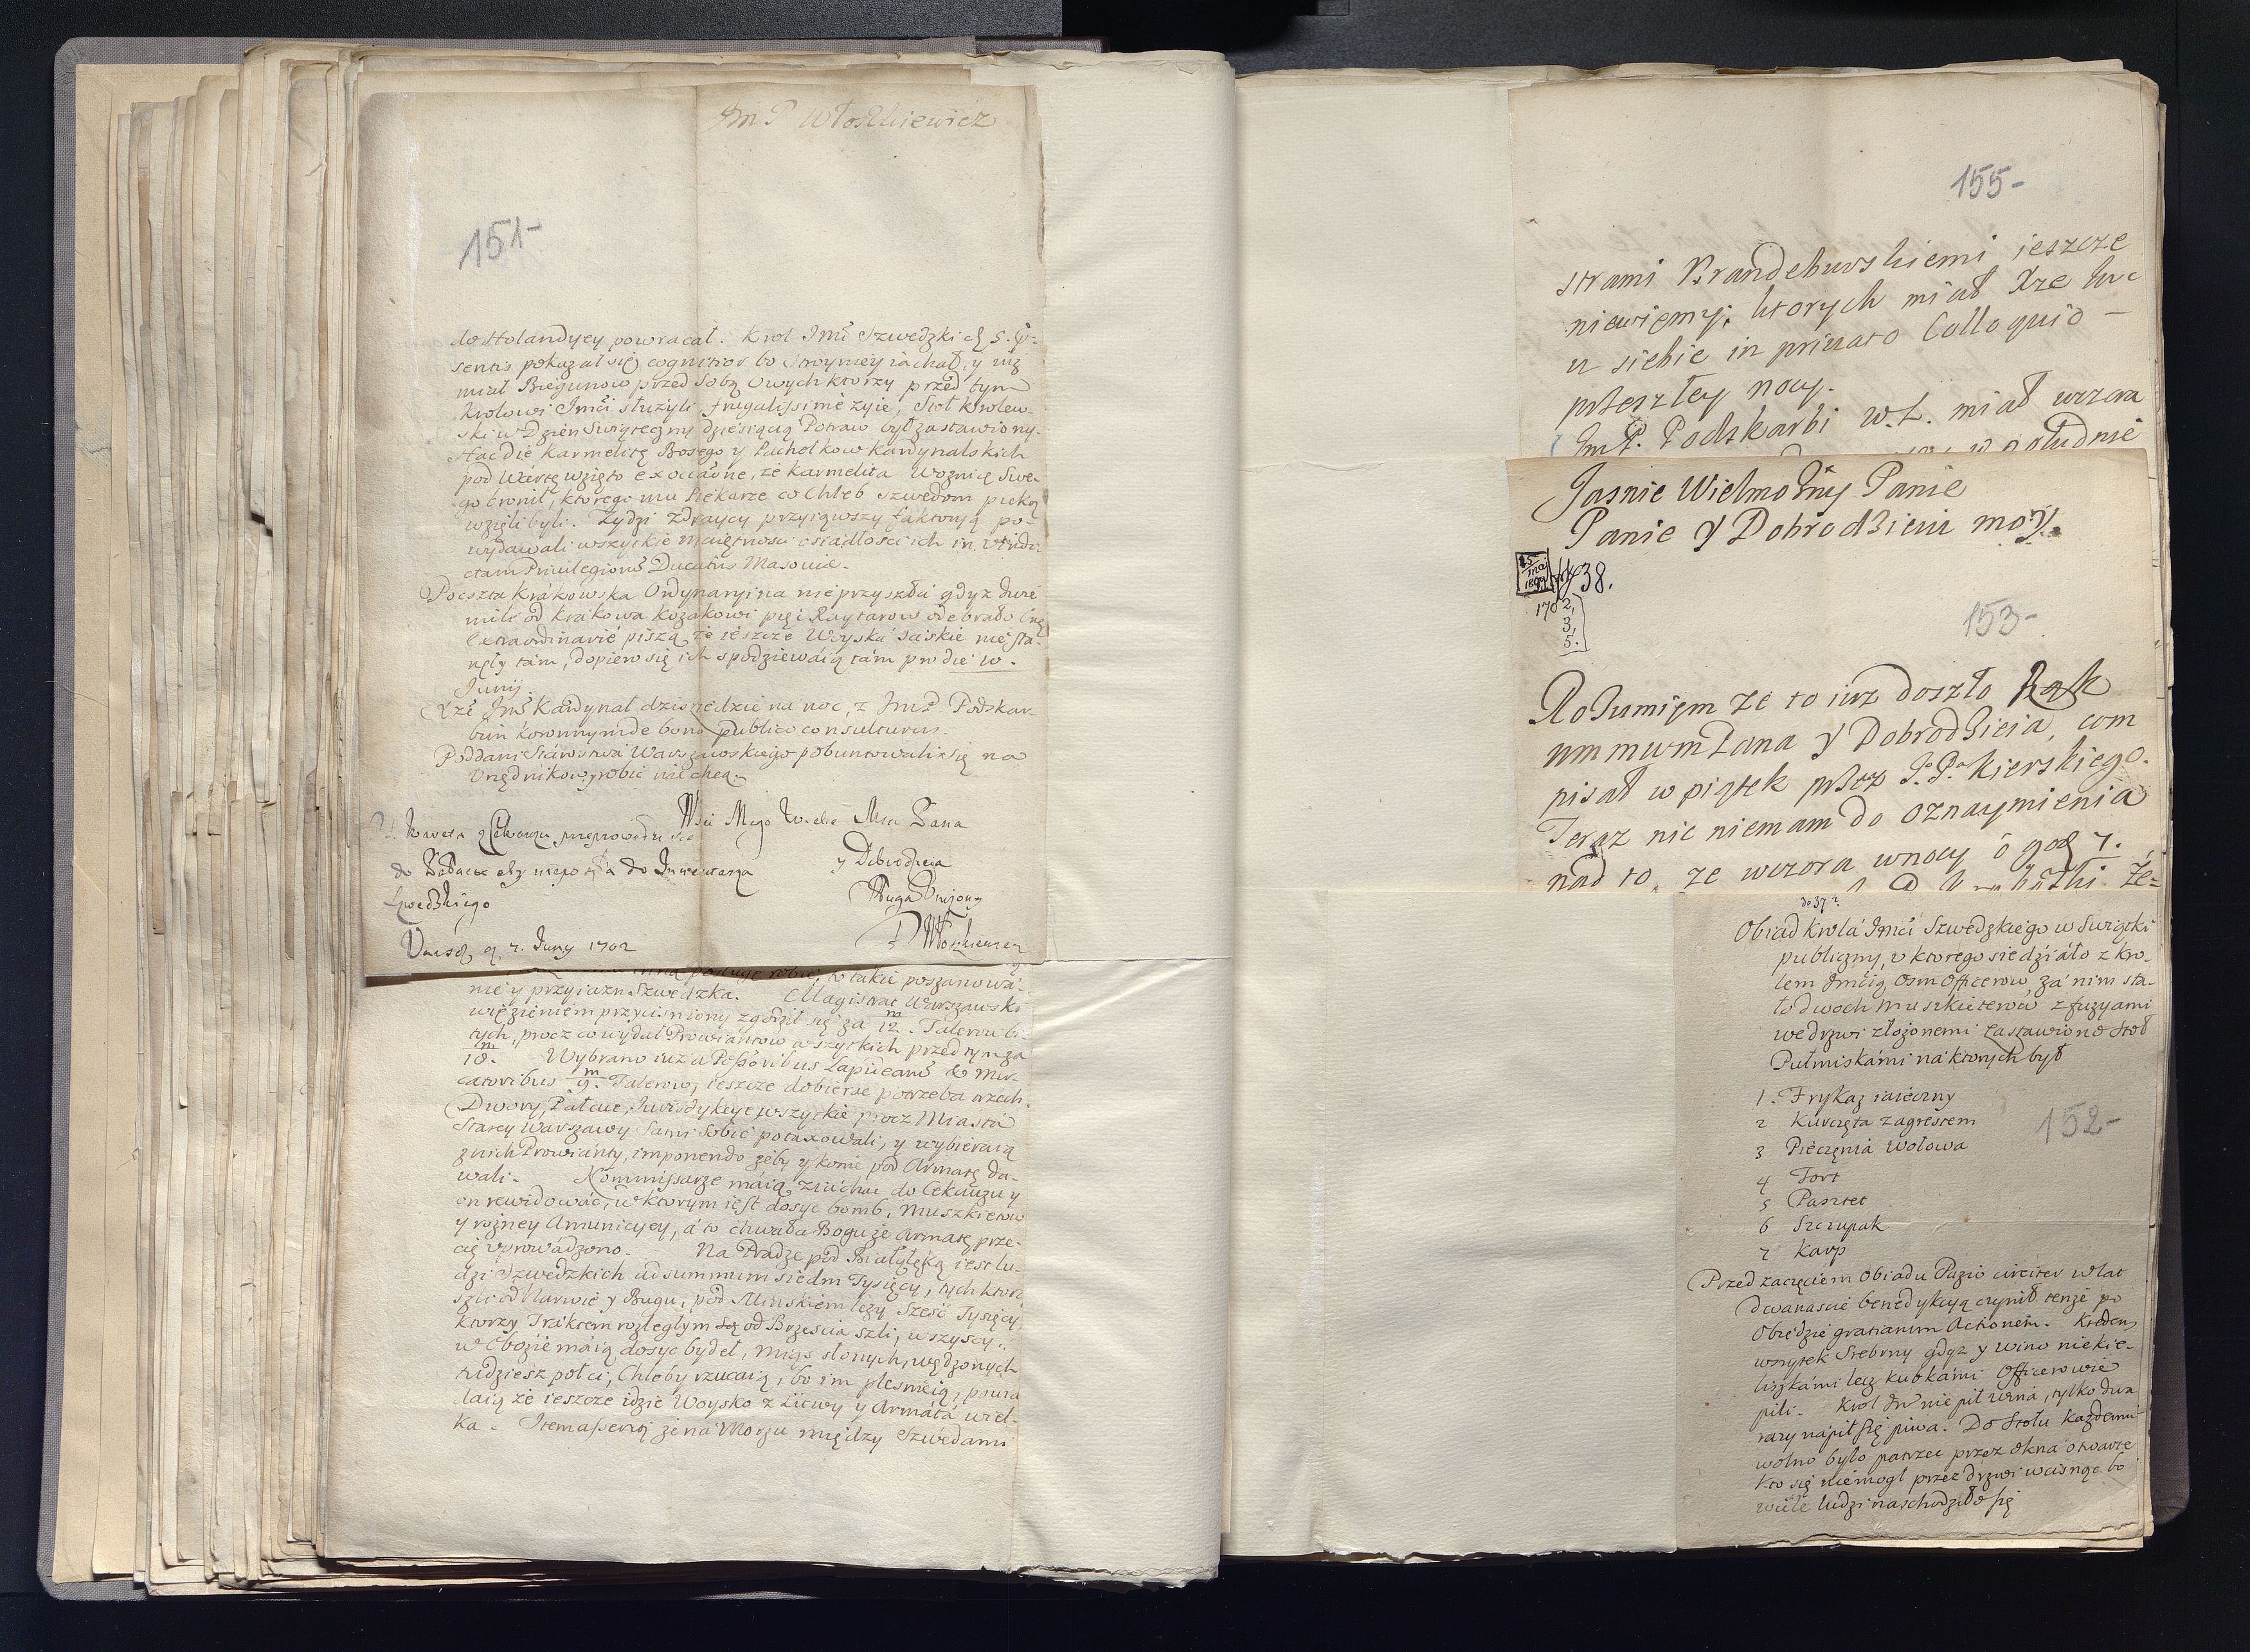 Jm P Włoszkiewicz
151-
do Holandyey powracał. Krol Jmć Szwedzki d. 5. P:
sentis pokazał się cognitior bo w troymey iachał, y iuż
miał Biegunow przed sobą owych ktorzy przed tym
Krolowi Jmci służyli frugalissime żyie, Stoł Krolew-
ski w Dzień Swiąteczny dziesiącią Potraw był zastawiony.
Hac die Karmelitę Bosego y Pachołkow Kardynalskich
pod Wartę wzięto ex occasione, że Karmelita Woznicę Swe-
go bronił, ktorego mu Piekarze co Chleb Szwedom pieką
wzięli byli. Zydzi zdraycy przyiąwszy faktoryą po-
wydawali wszystkie maiętnosci osiadłosci ich in vindi-
ctam Privilegiorũ Ducatus Masoviæ.
Poczta Krakowska Ordynaryina nie przyszła gdyz dwie
mile od Krakowa Kozakowi pięć Raytarow odebrało
Extraordinarie piszą że ieszcze Woyska Saskie nie sta-
nęły tam, dopiero się ich spodziewaią tam pro die 10.
Junij.
Xżę Jmć Kardynał dzis iedzie na noc, z Jmć Podskar-
bim Koronnym de bono publico consulturus.
Poddani Starostwa Warszawskiego pobuntowali się na
Urzędnikow, robić nie chcą.
Wći Mego Wielce Mści Pana
y Dobrodzieja
Sługa Uniżony
P Włoszkiewicz
do Pałacu aby nieposzła do Inwentarza
Szwedzkiego
Varsa d. 7. Juny 1702
inną posługę robić, to takie poszanowa-
nie y przyiazn Szwedzka. Magistrat Warszawski
więzieniem przycisniony zgodził się za 12. m Talerow bi-
tych, procz co wydał Prowiantow wszystkich przed tym za
18. m Wybrano iuż a Possessoribus Lapidearũ & Mer-
catoribus 9. m Talerow, ieszcze dobierać potrzeba trzech.
Dwory, Pałace, Jurisdykcye wszystkie procz Miasta
Starey Warszawy Sami sobie potaxowali, y wybieraią
z nich Prowianty, imponendo żeby y konie pod Armatę da-
wali. Kommissarze maią zniechać do Cekauzu y
on rewidować, w ktorym iest dosyc bomb, Muszkietow
y rożney Amunicyey, á to chwała Bogu że Armatę prze-
cię uprowadzono. Na Pradze pod Białąłęką iest lu-
dzi Szwedzkich ad summum siedm Tysięcy, tych ktorzi
szli od Narwie y Bugu, pod Minskiem leży Szesć Tysięcy
ktorzy Traktem rozległym od Brzescia szli, wszyscy
w Obozie maią dosyc bydeł, mięs słonych, wędzonych
tudziesz połci, Chleby rzucaią, bo im plesnieią, powia-
daią że ieszcze idzie Woysko z Litwy y Armata wiel-
ka. Item asserũt że na Morzu między Szwedami
155-
strami Brandeburskiemi ieszcze
niewięmy, ktorych miał Xze Jmc
u siebie in privato Colloquio –
przeszłey nocy.
Jm P. Podskarbi W.L. miał wczora
w południe
Jasnie Wielmozny Panie
Panie y Dobrodzieiu moy.
38.
1702,
3,
5.
153-
Rozumięm że to iuz doszło Rąk
wm mwm Pana y Dobrodzieia, com
pisał w piątek przez J.P. Kierskiego.
Teraz nic niemam do oznaymienia
nad to, że wczora w nocy o god 7.
do 37 ?.
Obiad Krola Jmći Szwedzkiego w Swiątki
publiczny, u ktorego siedziało z Kro-
lem Jmćią osm Officerow, za nim sta-
ło dwoch Muszkieterow z fuzyami
we drzwi złożonemi zastawiono stoł
Pułmiskami na ktorych był
1. Frykaz iaieczny
2 Kurczęta z agrestem
3 Pieczęnia Wołowa
4 Tort
5 Pasztet
6 Szczupak
7 Karp
152-
Przed zaczęciem Obiadu Pazio circiter w lat
dwanascie benedykcyą czynił tenże po
Obiedzie gratiarum Actionem. Kredens
wszytek Srebrny gdyz y wino niekie-
liszkami lecz kubkami Officerowie
pili. Krol Jmć nie pił wina, tylko dwa
razy napił się piwa. Do Stołu każdemu
wolno było patrzec przez okna otwarte
kto się niemogł przez drzwi wcisnąc bo
wiele ludzi naschodziło się